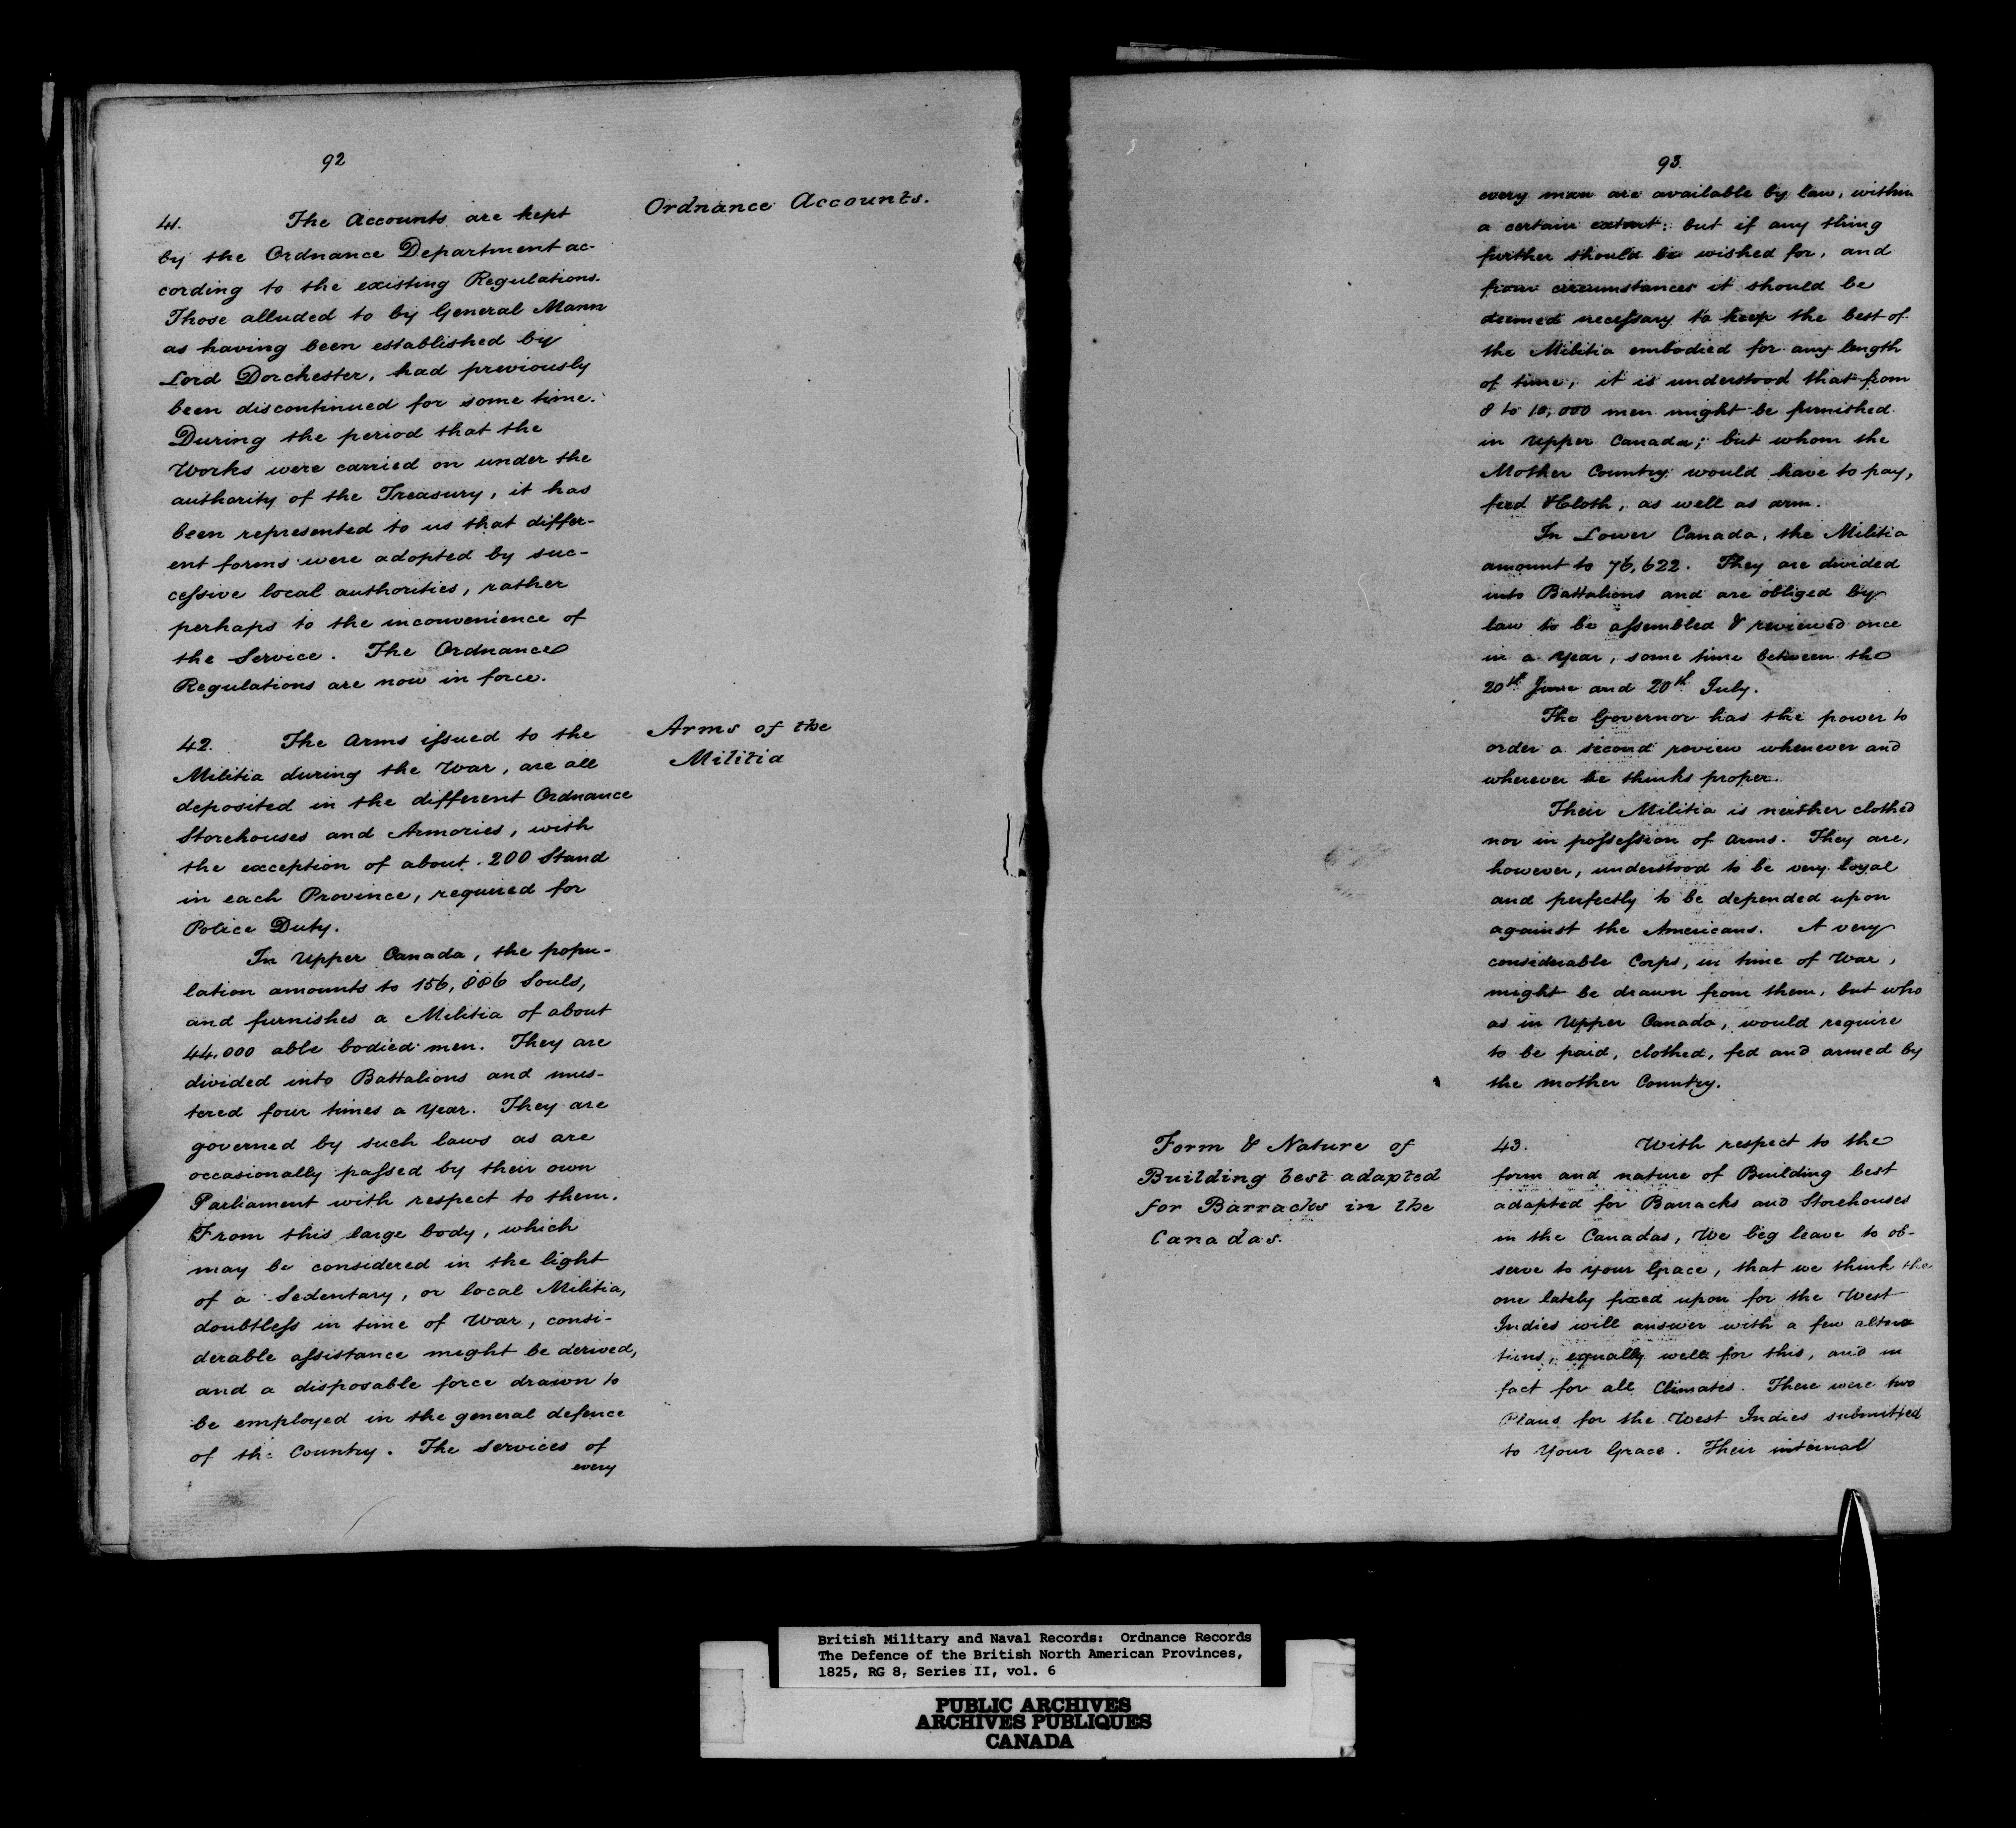 92
Ordnance Accounts.
41. The Accounts are kept
by the Ordnance Department ac-
cording to the existing Regulations.
Those alluded to by General Mann
as having been established by
Lord Dorchester, had previously
been discontinued for some time.
During the period that the
Works were carried on under the
authority of the Treasury, it has
been represented to us that differ-
ent forms were adopted by suc-
cessive local authorities, rather
perhaps to the inconvenience of
the Service. The Ordnance
Regulations are now in force.
Arms of the
Militia
42. The Arms issued to the
Militia during the War, are all
deposited in the different Ordnance
Storehouses and Armories, with
the exception of about 200 Stand
in each Province, required for
Police Duty.
In Upper Canada, the popu-
lation amounts to 156,886 Souls,
and furnishes a Militia of about
44,000 able bodied men. They are
divided into Battalions and mus-
tered four times a Year. They are
governed by such laws as are
occasionally passed by their own
Parliament with respect to them.
From this large body, which
may be considered in the light
of a Sedentary, or local Militia,
doubtless in time of War, consi-
derable assistance might be derived,
and a disposable force drawn to
be employed in the general defence
of the Country. The Services of
every
93.
every man are available by law, within
a certain extent: but if any thing
further should be wished for, and
from circumstances it should be
deemed necessary to keep the best of
the Militia embodied for any length
of time, it is understood that from
8 to 10,000 men might be furnished
in Upper Canada; but whom the
Mother Country would have to pay,
feed & Cloth, as well as arm.
In Lower Canada, the Militia
amount to 76,622. They are divided
into Battalions and are obliged by
law to be assembled & reviewed once
in a Year, some time between the
20th June and 20th July.
The Governor has the power to
order a second review whenever and
wherever he thinks proper.
Their Militia is neither clothed
nor in possession of Arms. They are,
however, understood to be very loyal
and perfectly to be depended upon
against the Americans. A very
considerable Corps, in time of War,
might be drawn from them, but who
as in Upper Canada, would require
to be paid, clothed, fed and armed by
the Mother Country.
Form & Nature of
Building best adapted
for Barracks in the
Canadas.
43. With respect to the
form and nature of Building best
adapted for Barracks and Storehouses
in the Canadas, We beg leave to ob-
serve to Your Grace, that we think the
one lately fixed upon for the West
Indies will answer with a few altera
tions, equally well for this, and in
fact for all Climates. There were two
Plans for the West Indies submitted
to Your Grace. Their internal
British Military and Naval Records: Ordnance Records
The Defence of the British North American Provinces,
1825, RG 8, Series II, vol. 6
PUBLIC ARCHIVES
ARCHIVES PUBLIQUES
CANADA